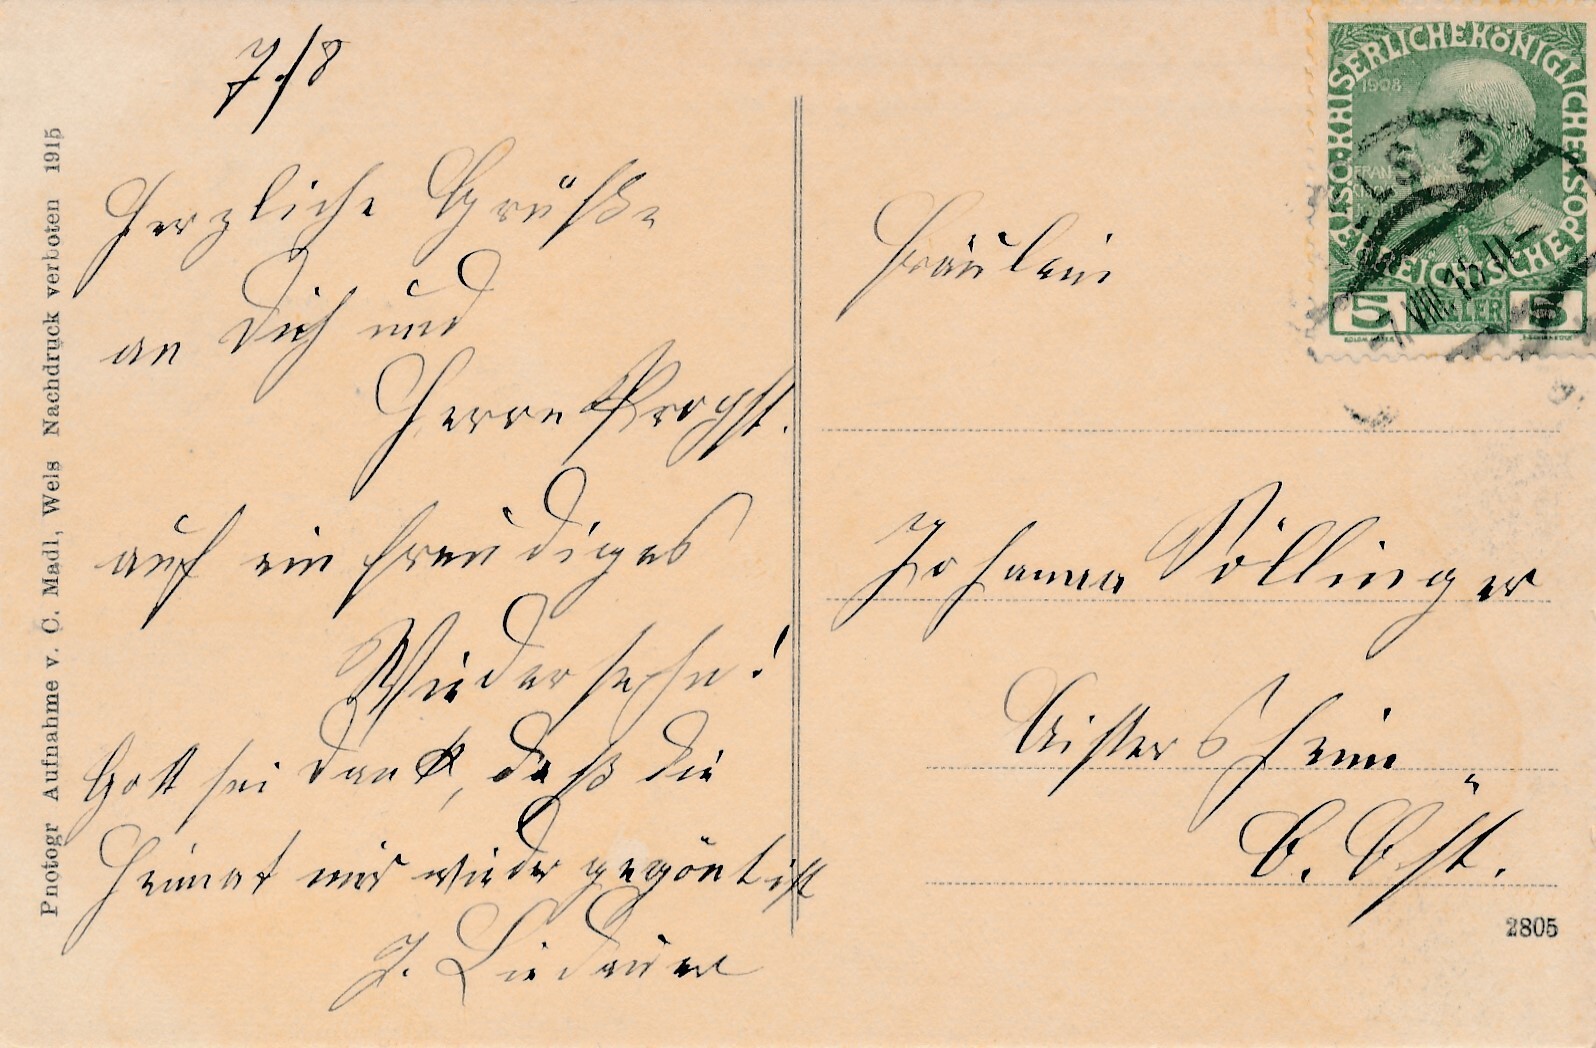 7./8
Herzliche Grüße
an Dich und
Herrn Propst.
auf ein freudiges
Wiedersehn!
Gott sei dank, daß die
Heimat mir wieder gegönt ist
J.
Fräulein
Johanna Pöllinger
Aistersheim
O. Öst.
2805
Photogr Aufnahme v. C. Madl, Wels Nachdruck verboten 1915
KAISERLICHE KÖNIGLICHE ÖSTERREICHISCHE POST
1908
5 HELLER 5
LS 2
VIII. 15